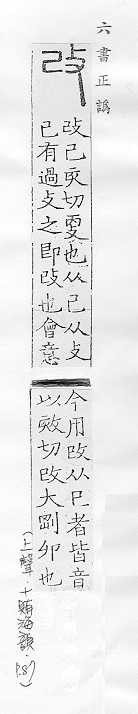 六書正譌
攺
攺己亥切㪅也从己从攴
己有過攴之即攺也會意
今用攺从巳者皆音
以效切攺大剛卯也
(上聲‧十賄海韻 P.87)